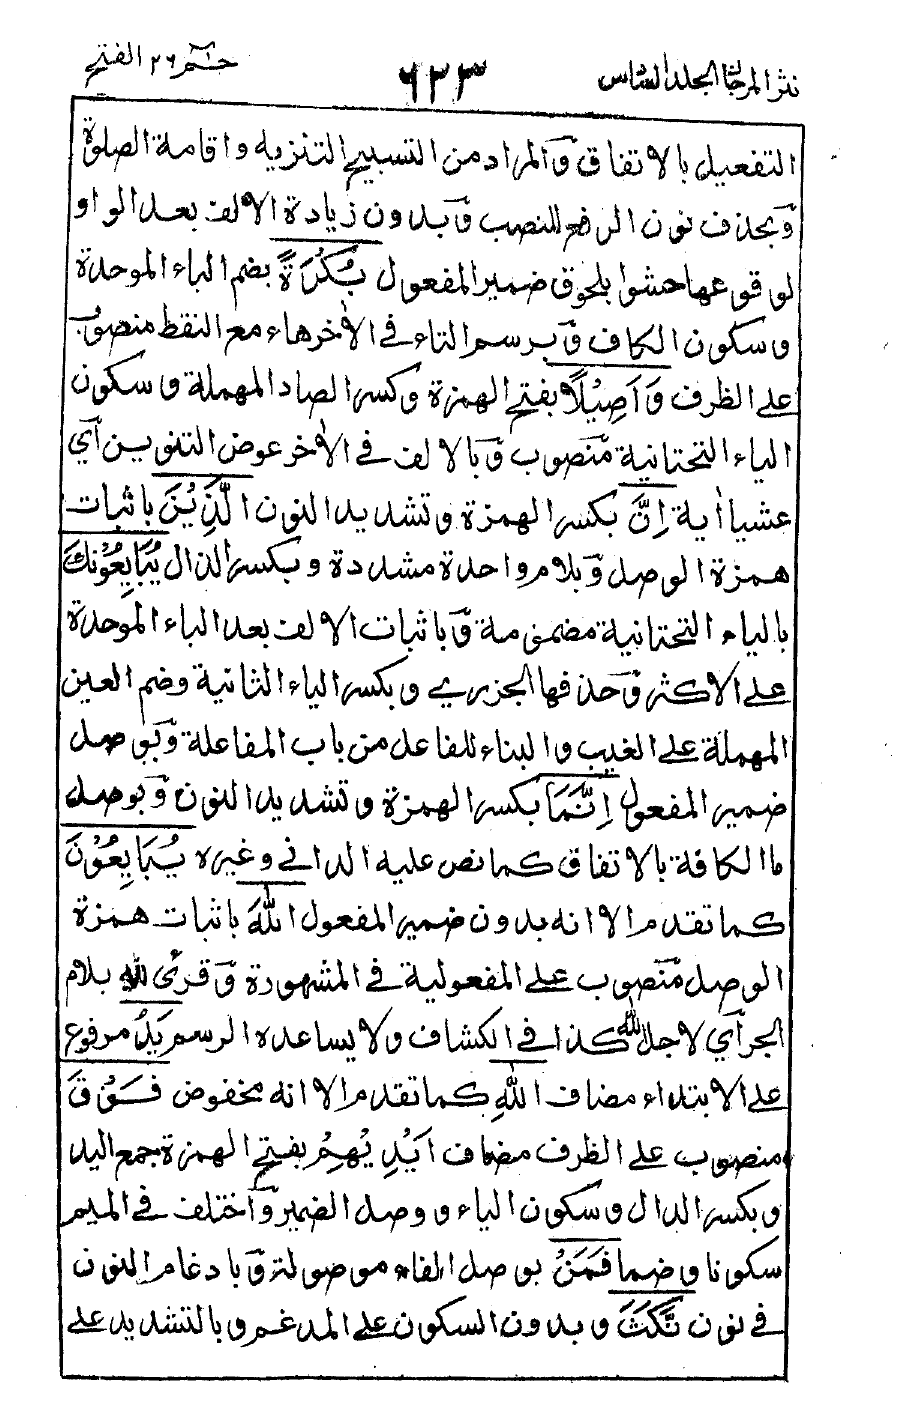 نثر المرجان المجلد السادس ٦٢٣ حٰمٓ ٢٦ الفتح
التفعيل بالاتفاق والمراد من التسبيح التنزيه واقامة الصلوة
وبحذف نون الرفع للنصب وبدون زيادة الالف بعد الواو
لوقوعها حشوا بلحوق ضمير المفعول بُكْرَةً بضم الباء الموحدة
وسكون الكاف وبرسم التاء في الاٰخر هاء مع النقط منصوب
على الظرف وَاَصِيْلًا بفتح الهمزة وكسر الصاد المهملة وسكون
الياء التحتانية منصوب وبالالف في الاٰخر عوض التنوين اَي
عشيا اٰية اِنَّ بكسر الهمزة وتشديد النون الَّذِيْنَ باثبات
همزة الوصل وبلام واحدة مشددة وبكسر الذال يُبَايِعُوْنَكَ
بالياء التحتانية مضمومة وباثبات الالف بعد الباء الموحدة
على الاكثر وحذفها الجزري وبكسر الياء الثانية وضم العين
المهملة على الغيب والبناء للفاعل من باب المفاعلة وبوصل
ضمير المفعول اِنَّمَا بكسر الهمزة وتشديد النون وبوصل
ما الكافة بالاتفاق كما نص عليه الداني وغيره يُبَايِعُوْنَ
كما تقدم الا انه بدون ضمير المفعول اللّٰهَ باثبات همزة
الوصل منصوب على المفعولية في المشهورة وقرئ لله بلام
الجر اَي لاجل الله كذا في الكشاف ولا يساعده الرسم يَدُ مرفوع
على الابتداء مضاف اللّٰهِ كما تقدم الا انه مخفوض فَوْقَ
منصوب على الظرف مضاف اَيْدِيْهِمْ بفتح الهمزة جمع اليد
وبكسر الدال وسكون الياء ووصل الضمير واختلف في الميم
سكونا وضما فَمَنْ بوصل الفاء موصولة وبادغام النون
في نون نَّكَثَ وبدون السكون على المدغم وبالتشديد على